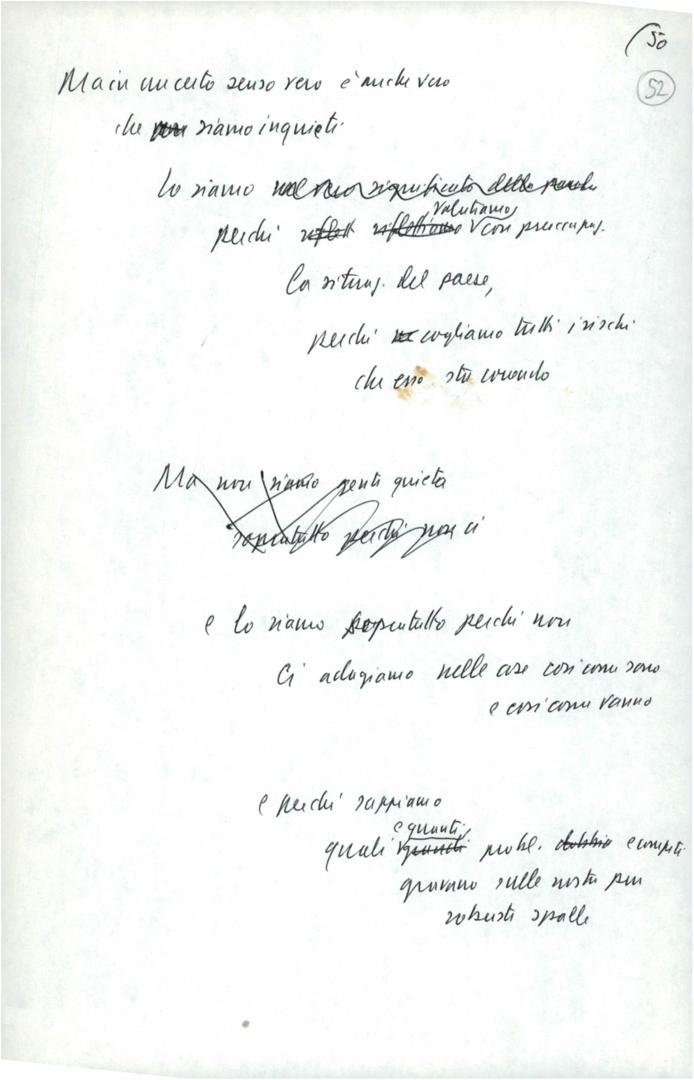 50
52
Ma in un certo senso vero è anche vero
che non siamo inquieti.
Lo siamo nel vero significato della parola
valutiamo
perchè riflett riflettiamo con preoccupaz.
la situaz. del paese,
perchè cogliamo tutti i rischi
che esso sta correndo
Ma non siamo gente quieta
soprattutto perchè non ci
e lo siamo soprattutto perchè non
ci adagiamo nelle cose così come sono
e così come vanno
e perchè sappiamo
e quanti
quali probl. e compiti
gravano sulle nostre pur
robuste spalle